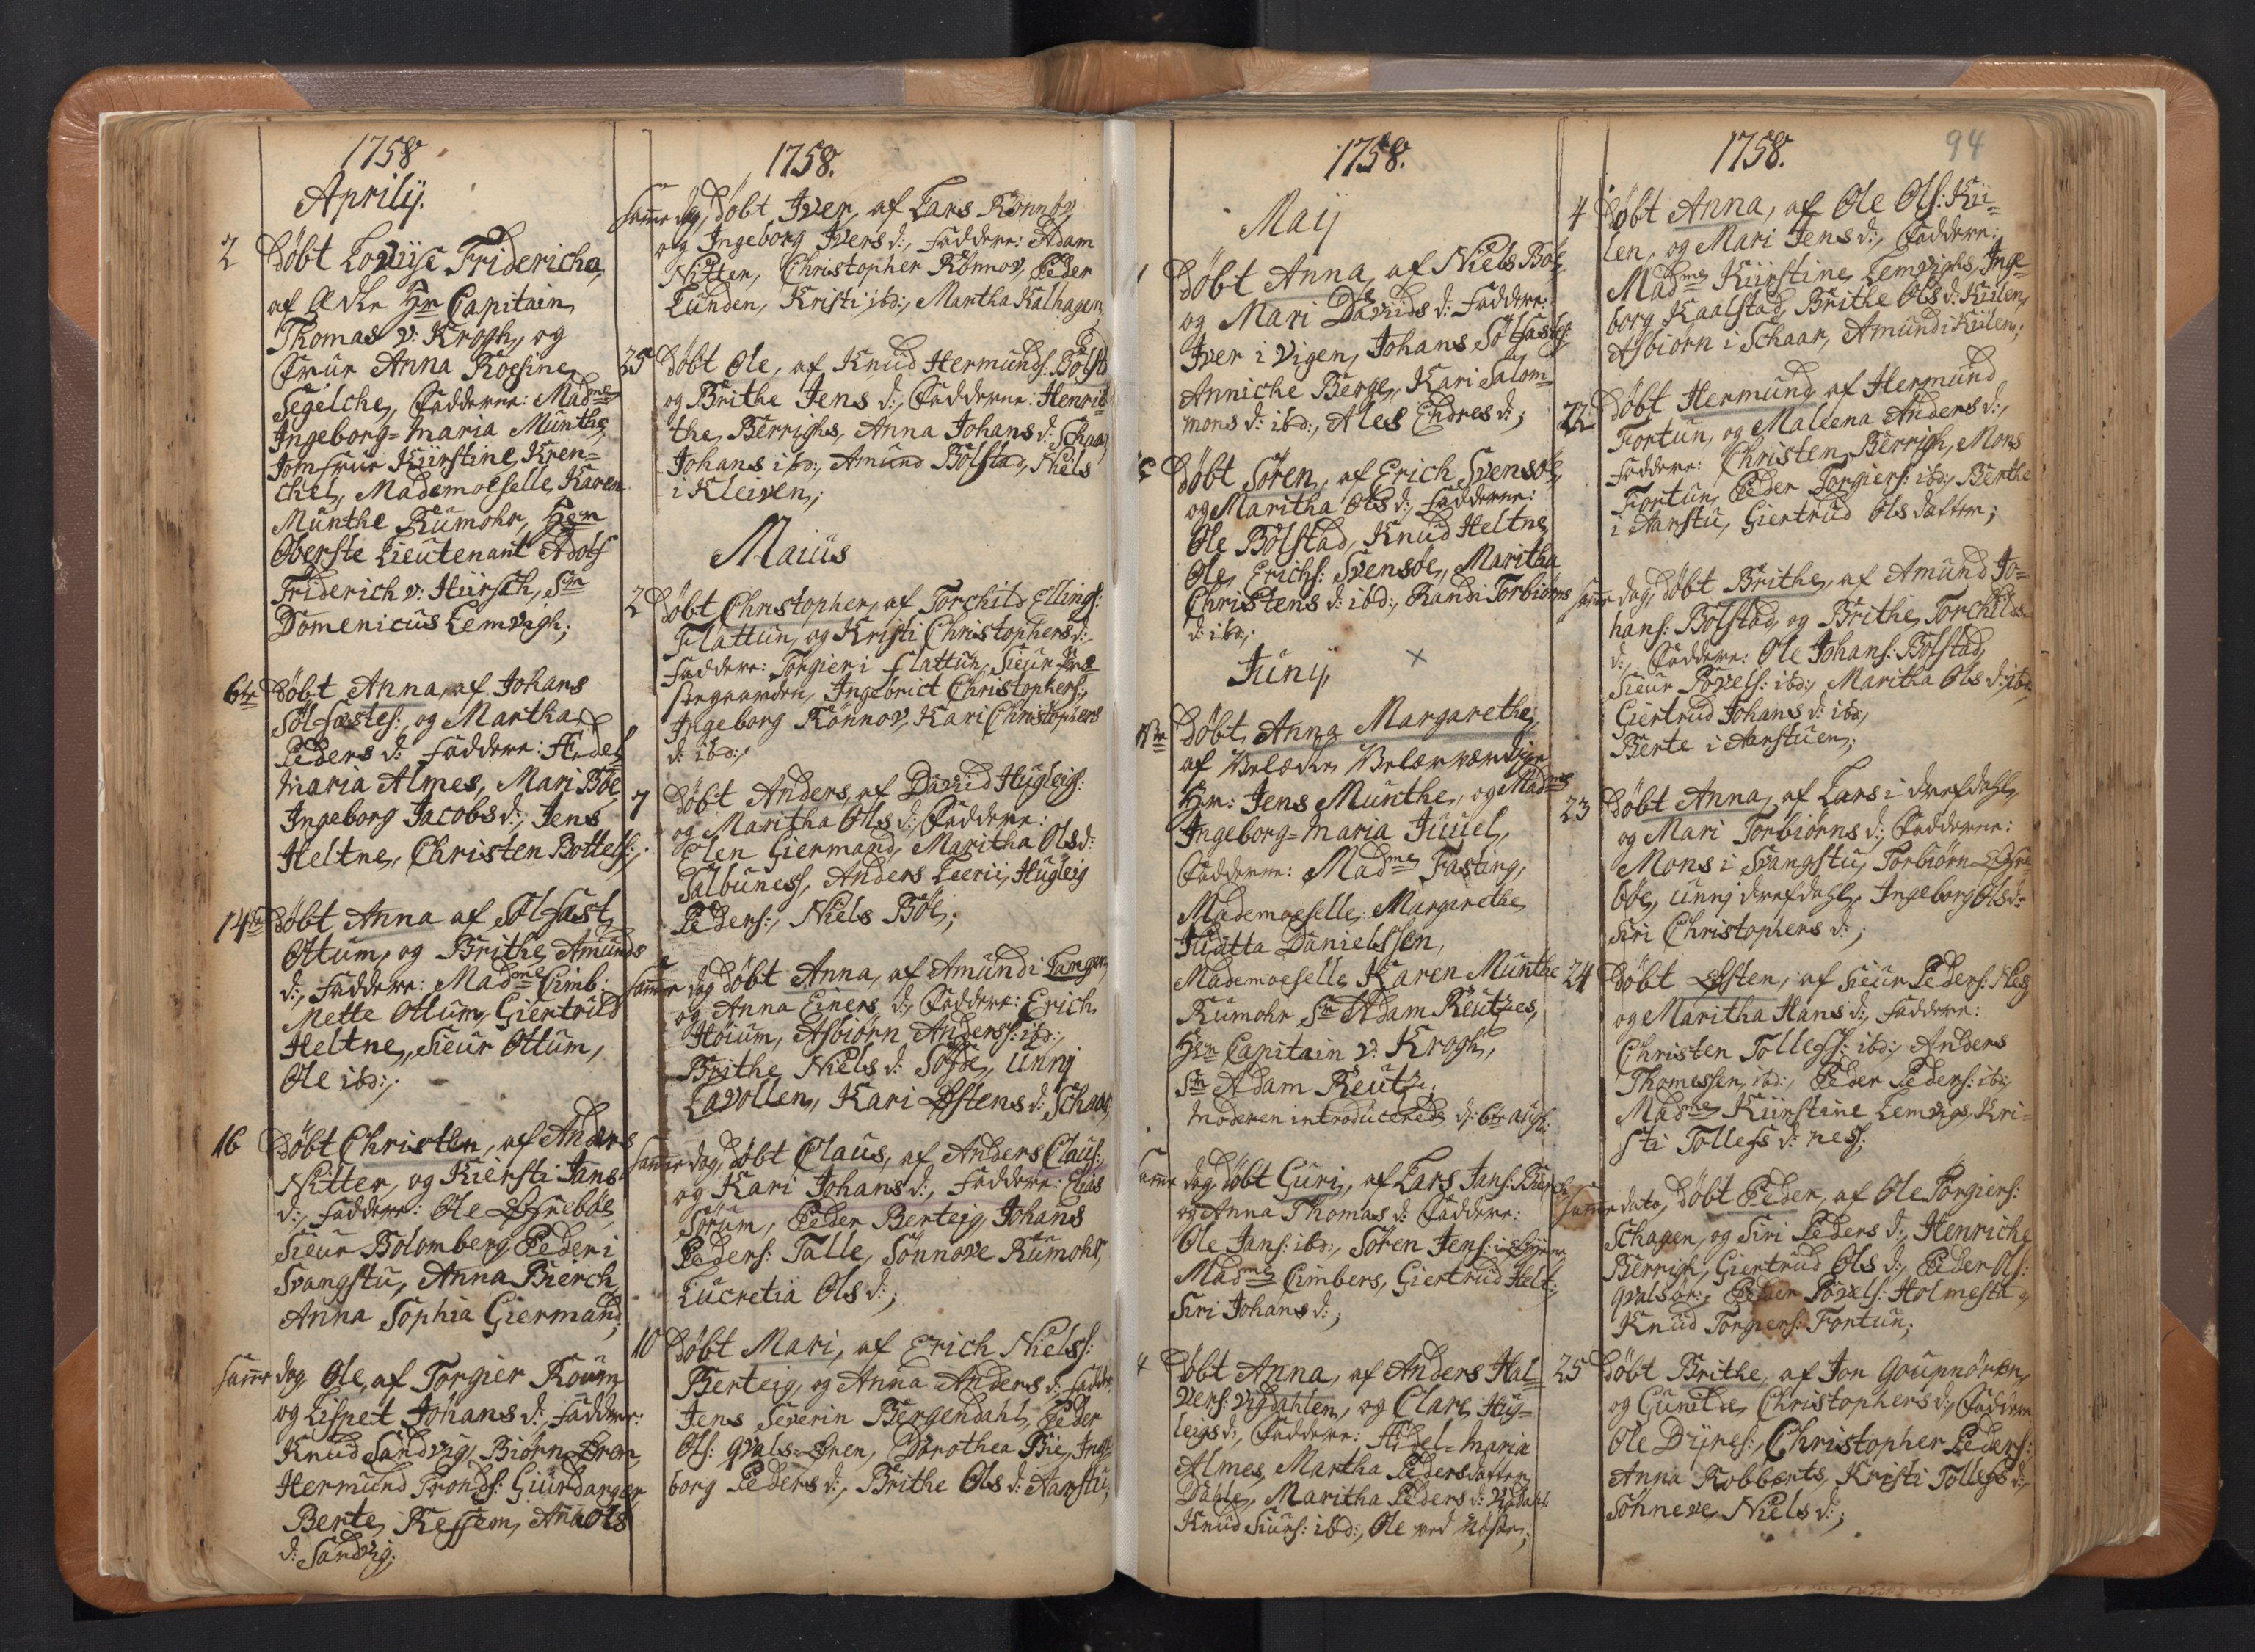 1758
Aprilij.
2 Døbt Lovüise Fridericha,
af Ædle Hr Capitain
Thomas v: Krogh, og
Frue Anna Rosine
Segelche, Faddere: Madme
Ingeborg=Maria Münthe,
Jomfrue Kiirstine Kren=
chel, Mademoeselle Karen
Münthe Rümohr, Hrn
Oberste Lieutenant Adolf
Friderich v: Hürsch, Sr
Domenicus Lemvigh;
6te Døbt Anna, af Johans
Sølfæstes:, og Martha
Peders d: Faddere: Hedel
Maria Almes, Mari Bøe,
Ingeborg Jacobs d:, Jens
Heltne, Christen Bottels:;
14de Døbt Anna af Sølfast
Ottum, og Brithe Amunds
d:, Faddere: Madme Cimb:
Mette Ottum, Giertrud
Heltne, Sieur Ottum,
Ole ibd:;
16 Døbt Christen, af Anders
Nitter, og Kiersti Jans
d:, Faddere: Ole Øyrebøe
Sieur Bolomberg Peder i
Svangstu, Anna Bierch
Anna Sophia Giermand;
Samme dag Ole, af Torgier Roüm
og Lispet Johans d:, Faddere:
Knud Sandvig, Biørn Øren,
Hermund Tronds: Giürdanger,
Berte Kessem, Ana Ols
d: Sandvig;
1758.
Samme dag, Døbt Iver, af Lars Rønnov
og Ingeborg Ivers d:, Faddere: Adam
Nitter, Christopher Rønnov, Peder
Lunden, Kristi ibd:, Martha Kalhagen,
25 Døbt Ole, af Knud Hermunds: Bolstd
og Brithe Jens d:, Faddere: Henrik
the Berrighs, Anna Johans d: Schaar,
Johans ibd:, Amund Bolstad, Niels
i Kleiven;
Maiüs
2 Døbt Christopher, af Torchild Ellings:
Flattun, og Kristi Christophers d:,
Faddere: Torgier i Flattun, Sieur Præ=
stegaarden, Ingebrict Christophers:,
Ingeborg Rönnov, Kari Christophers
d: ibd:;
7 Døbt Anders, af David Hugleigs:
og Maritha Ols d:, Faddere:
Elen Giermand, Maritha Ols d:
Salbuness, Anders Leerii, Hugleig
Peders:, Niels Bøe;
Samme dag Døbt Anna, af Amund i Tangen
og Anna Einers d:, Faddere: Erich
Høium, Asbiørn Anders: ibd:,
Brithe Niels d: Sofde, Unni
Lavollen, Kari Østens d: Schaar,
Samme dag, Døbt Claus, af Anders Claus:,
og Kari Johans d:, Faddere: Elias
Sørum, Peder Berteig, Johans
Peders: Talle, Sønnove Rümohr,
Lucretia Ols d:;
10 Døbt Mari, af Erich Niels:
Berteig, og Anna Anders d: Faddre
Jens Severin Bergendahl, Peder
Ols: Qvals=Øren, Dorothea Bie, Inge
borg Peders d:, Brithe Ols d: Aarstu;
1758.
Maij
1 Døbt Anna, af Niels Bøe,
og Mari Davids d: Faddere:
Iver i Vigen, Johans Sølfastes:
Anniche Berge, Kari Salom=
mons d: ibd:, Ales Endres d:;
Døbt Søren, af Erich Svensøe,
og Maritha Ols d:, Faddere:
Ole Bolstad, Knud Heltne,
Ole Erichs: Svensøe, Maritha
Christens d: ibd:, Randi Torbiørns
d: ibd:;
Jünij,
Døbt Anna Margarethe,
af Velædle Velærværdige
Hr: Jens Munthe, og Madme
Ingeborg=Maria Juuel,
Faddere: Madme Fasting,
Mademoeselle Margarethe
Judtta Danielssen,
Mademoeselle Karen Münthe
Rümohr Sr Adam Reutzes,
Hr Capitain v: Krogh,
Sr Adam Reütz;
Moderen introducerede d: 6te Aug:
Samme dag Døbt Guri, af Lars Jans: Bierch
og Anna Thomas d: Faddere:
Ole Jans: ibd:, Søren Jens: i
Madme Cimbers, Giertrud Helt:,
Siri Johans d:;
4 Døbt Anna, af Anders Hal=
vers: Vigdahlen, og Clare Hug=
leigs d:, Faddere: Hedel=Maria
Almes, Martha Peders datter
Dahle, Maritha Peders d: Vigdahl:
Knud Siurs: ibd:, Ole ved Nøste;
1758.
94
4 Døbt Anna, af Ole Ols: Kii=
len, og Mari Jens d:, Faddere:
Madme Kiirstine Lemvighs, Inge=
borg Kaalstad, Brithe Ols d: Kiilen,
Asbiørn i Schaar, Amund i Kiilen;
22 Døbt Hermund, af Hermund
Fortun, og Maleena Anders d:,
Faddere: Christen Berrigh, Mons
Fortun, Peder Torgiers: ibd:, Berthe
i Aarstu, Giertrud Ols datter;
Samme dag, Døbt Brithe, af Amund Jo=
hans: Bolstad, og Brithe Torchilds
d:, Faddere: Ole Johans: Bolstad,
Sieur Povels: ibd:, Maritha Ols d: ibd:
Giertrud Johans d: ibd:,
Berte i Aarstuen;
23 Døbt Anna, af Lars i Drefdahl,
og Mari Torbiørns d:, Faddere:
Mons i Svangstu, Torbiørn Øyre=
bøe, Unni Drefdahl, Ingeborg Ols d:
Siri Christophers d:;
24 Døbt Østen, af Sieur Peders: Nes
og Maritha Hans d:, Faddere:
Christen Tollefs: ibd:, Anders
Thomessen ibd:, Peder Peders: ibd:,
Madme Kiirstine Lemvigs, Kri=
sti Tollefs d: nes;
Samme dato, Døbt Peder, af Ole Torgiers:
Schagen, og Siri Peders d:, Henriche
Berrigh, Giertrud Ols d:, Peder Ols:
Qvalsør:, Peder Povels: Holmestd
Knud Torgiers: Fortun;
25 Døbt Brithe, af Jon Goupnøren,
og Gunilde Christophers d:, Faddere
Ole Dyres:, Christopher Peders:
Anna Robberts, Kristi Tollefs d:,
Sønneve Niels d:;